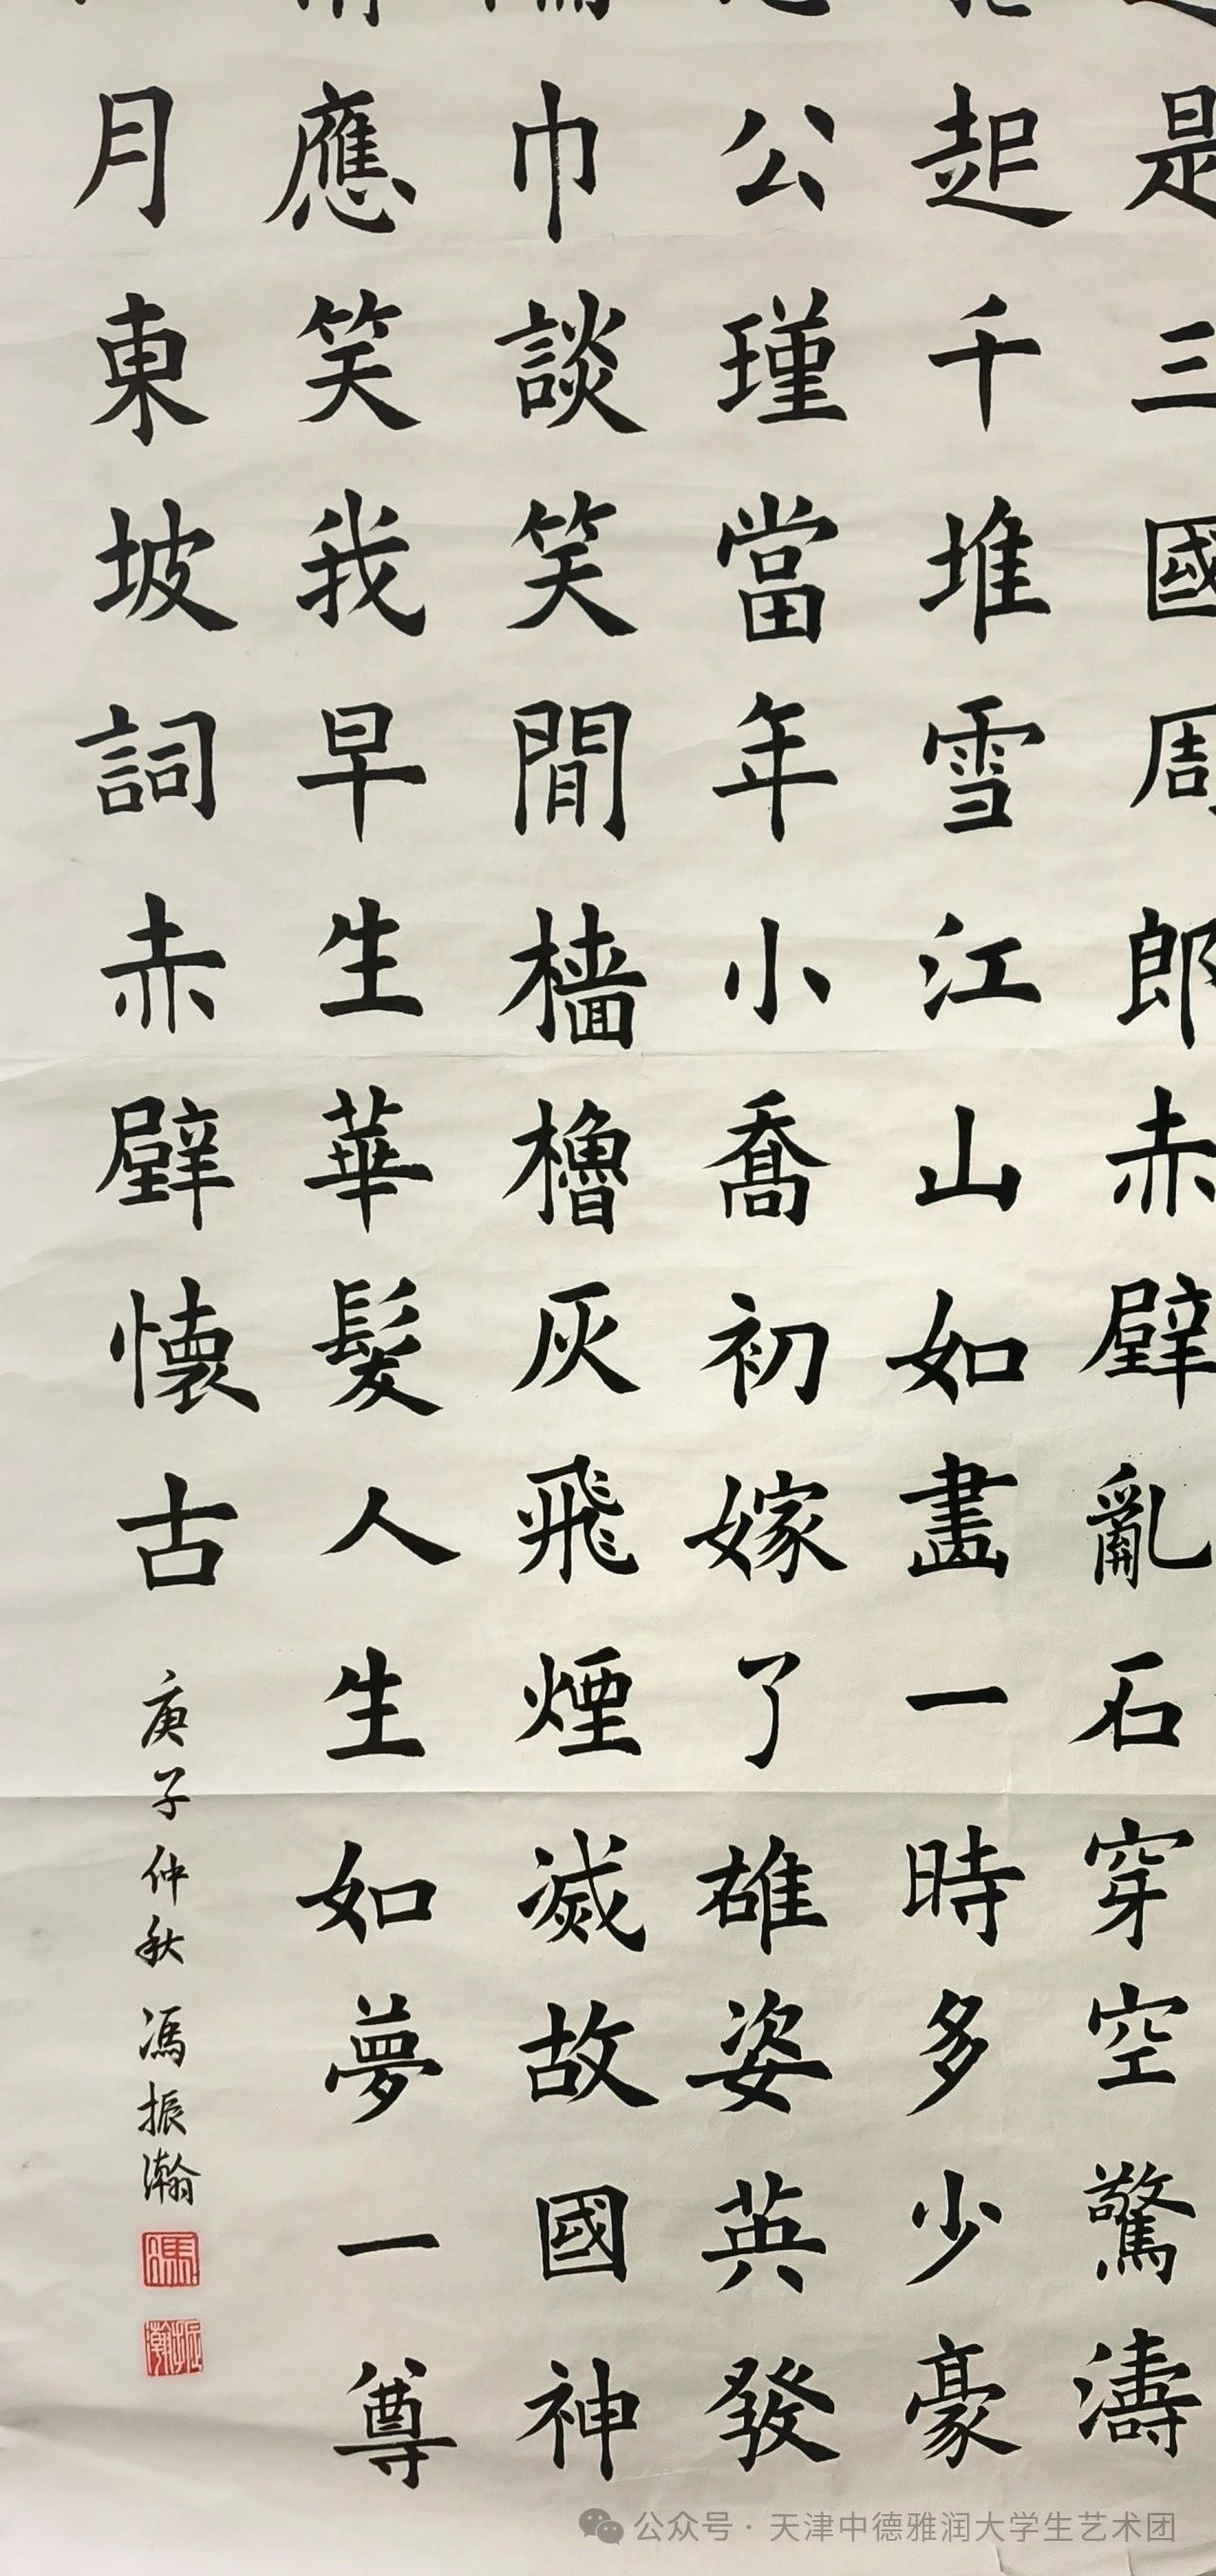 是三國周郎赤壁亂石穿空驚濤
起千堆雪江山如畫一時多少豪
公瑾當年小喬初嫁了雄姿英發
巾談笑間檣櫓灰飛煙滅故國神
應笑我早生華髮人生如夢一尊
月東坡詞赤壁懷古
庚子仲秋馮振瀚
公众号·天津中德雅润大学生艺术团